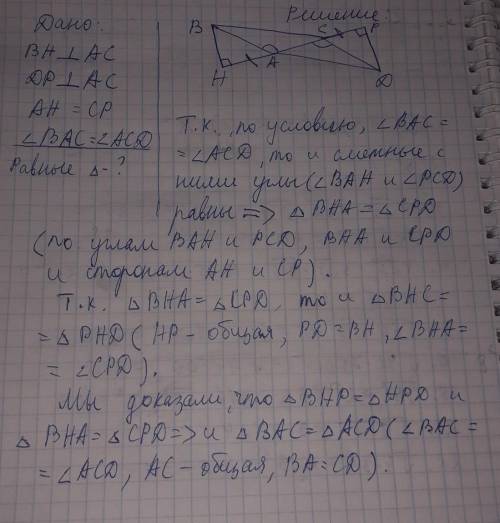 Дано:
Решение:
BH ⊥ AC
DP ⊥ AC
AH = CP
∠BAC = ∠ACD
Равные Δ - ?
B
C
P
H
A
D
Т.к., по условию, ∠BAC =
= ∠ACD, то и смежные с
ними углы (∠BAH и ∠PCD)
равны => ΔBHA = ΔCPD
(по углам BAH и PCD, BHA и CPD
и сторонам AH и CP).
Т.к. ΔBHA = ΔCPD, то и ΔBHC =
= ΔPHD (HP - общая, PD = BH, ∠BHA =
= ∠CPD).
Мы доказали, что ΔBHP = ΔHPD и
ΔBHA = ΔCPD => и ΔBAC = ΔACD (∠BAC =
= ∠ACD, AC - общая, BA = CD).